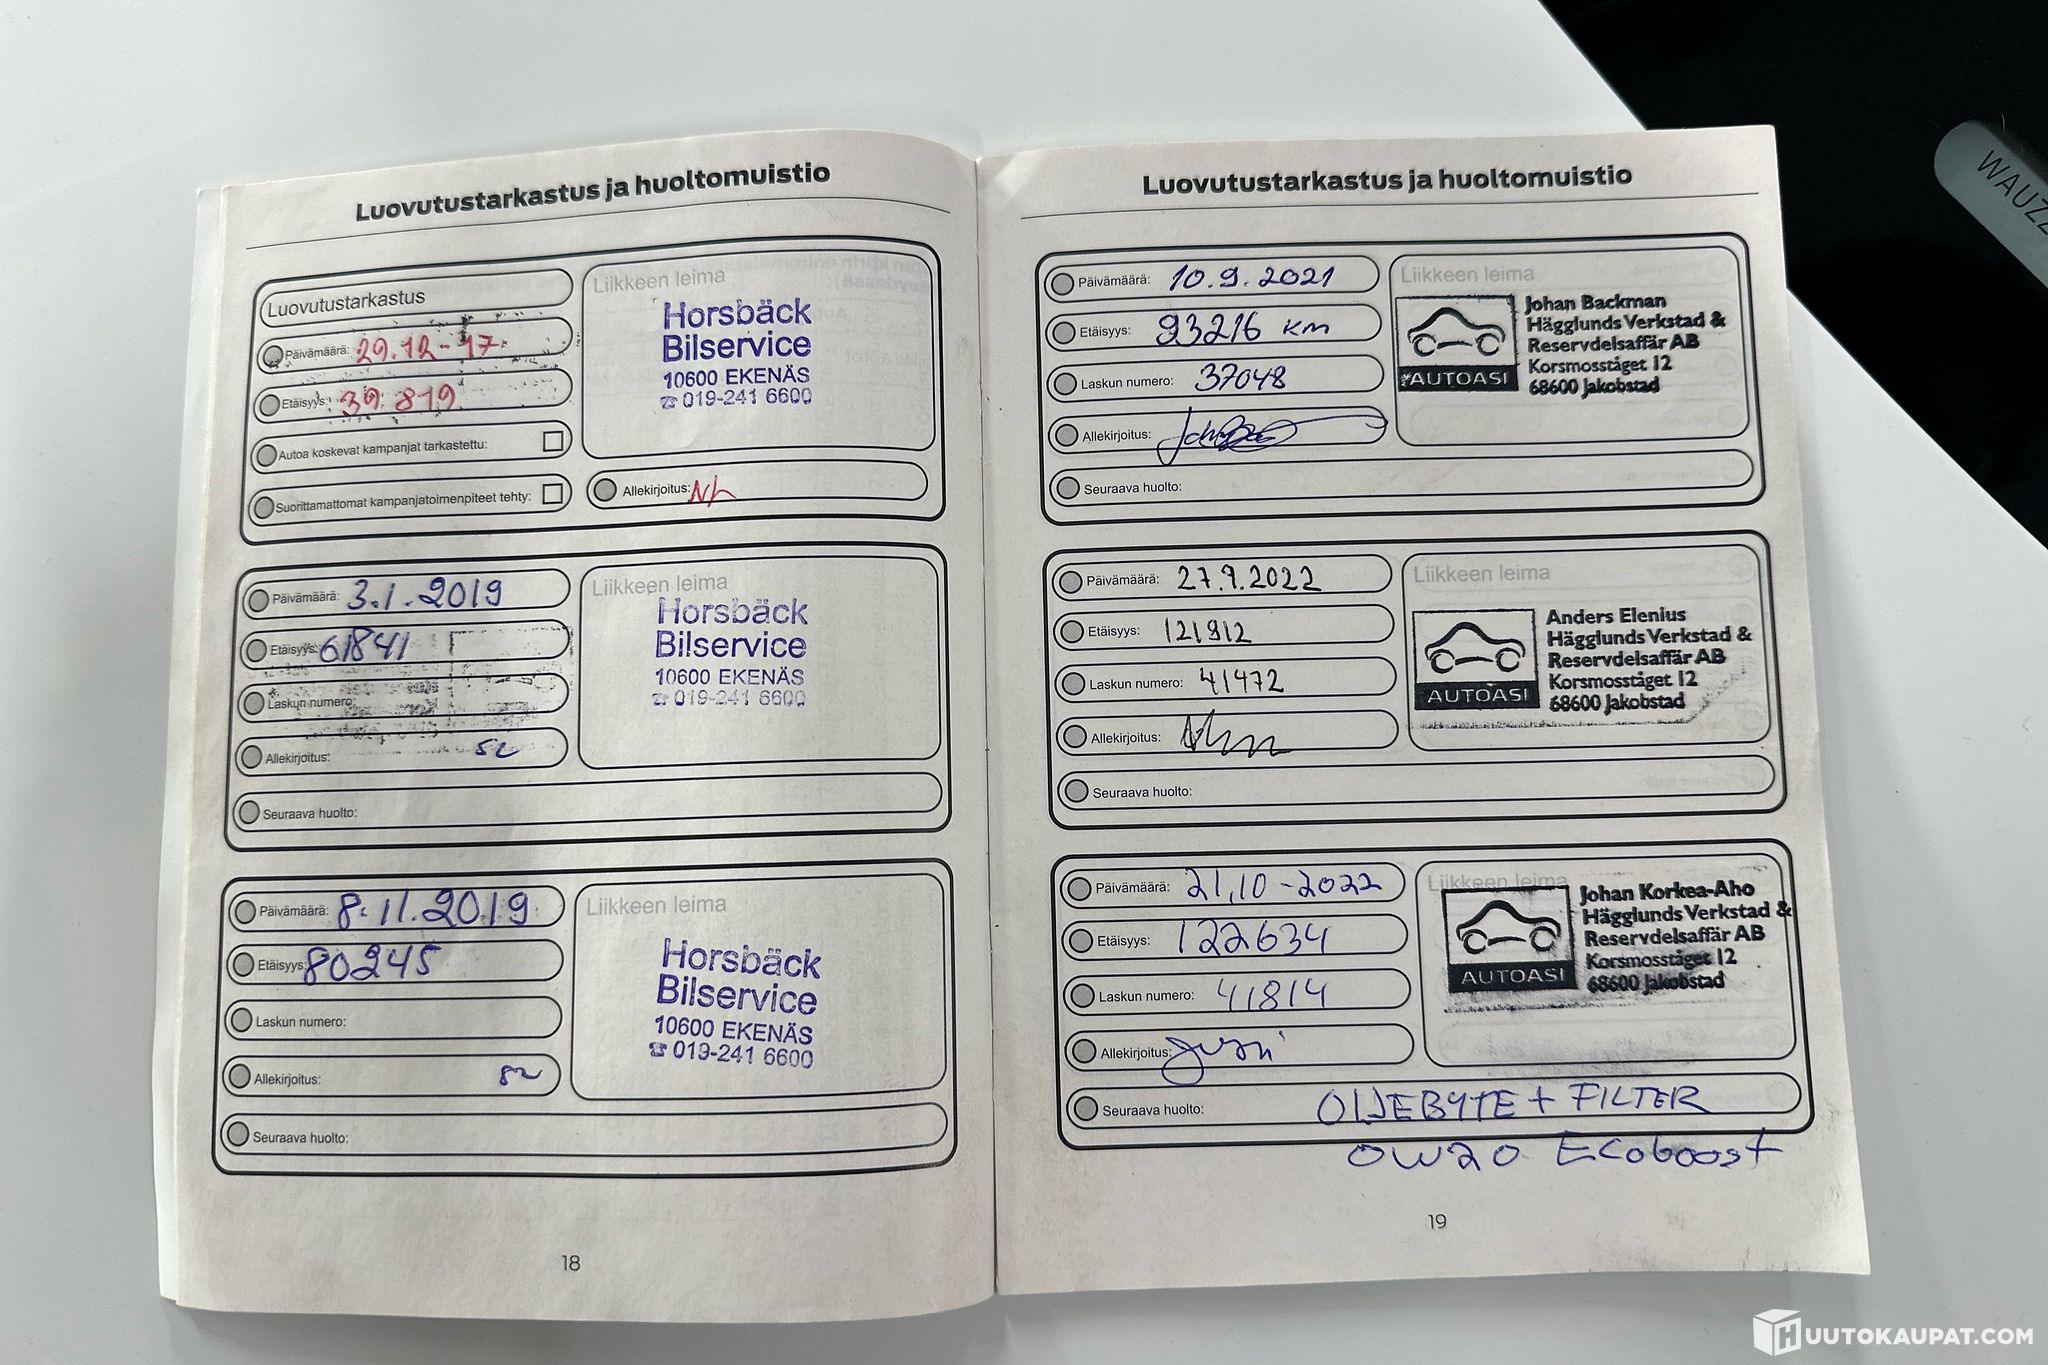 Luovutustarkastus ja huoltomuistio
Luovutustarkastus
Päivämäärä: 29.12-17
Etäisyys: 39 819
Autoa koskevat kampanjat tarkastettu:
Suorittamattomat kampanjatoimenpiteet tehty:
Liikkeen leima
Horsbäck
Bilservice
10600 EKENÄS
☎ 019-241 6600
Allekirjoitus:
Päivämäärä: 3.1.2019
Etäisyys: 61841
Laskun numero:
Allekirjoitus:
Seuraava huolto:
Liikkeen leima
Horsbäck
Bilservice
10600 EKENÄS
☎ 019-241 6600
Päivämäärä: 8.11.2019
Etäisyys: 80245
Laskun numero:
Allekirjoitus:
Seuraava huolto:
Liikkeen leima
Horsbäck
Bilservice
10600 EKENÄS
☎ 019-241 6600
18
Luovutustarkastus ja huoltomuistio
Päivämäärä: 10.9.2021
Etäisyys: 93216 km
Laskun numero: 37048
Allekirjoitus:
Seuraava huolto:
Liikkeen leima
AUTOASI
Johan Backman
Hägglunds Verkstad &
Reservdelsaffär AB
Korsmosståget 12
68600 Jakobstad
Päivämäärä: 27.9.2022
Etäisyys: 121912
Laskun numero: 41472
Allekirjoitus:
Seuraava huolto:
Liikkeen leima
AUTOASI
Anders Elenius
Hägglunds Verkstad &
Reservdelsaffär AB
Korsmosståget 12
68600 Jakobstad
Päivämäärä: 21,10-2022
Etäisyys: 122634
Laskun numero: 41814
Allekirjoitus:
Seuraava huolto: OLJEBYTE + FILTER
0W20 Ecoboost
Liikkeen leima
AUTOASI
Johan Korkea-Aho
Hägglunds Verkstad &
Reservdelsaffär AB
Korsmosståget 12
68600 Jakobstad
19
WAUZ
HUUTOKAUPAT.COM